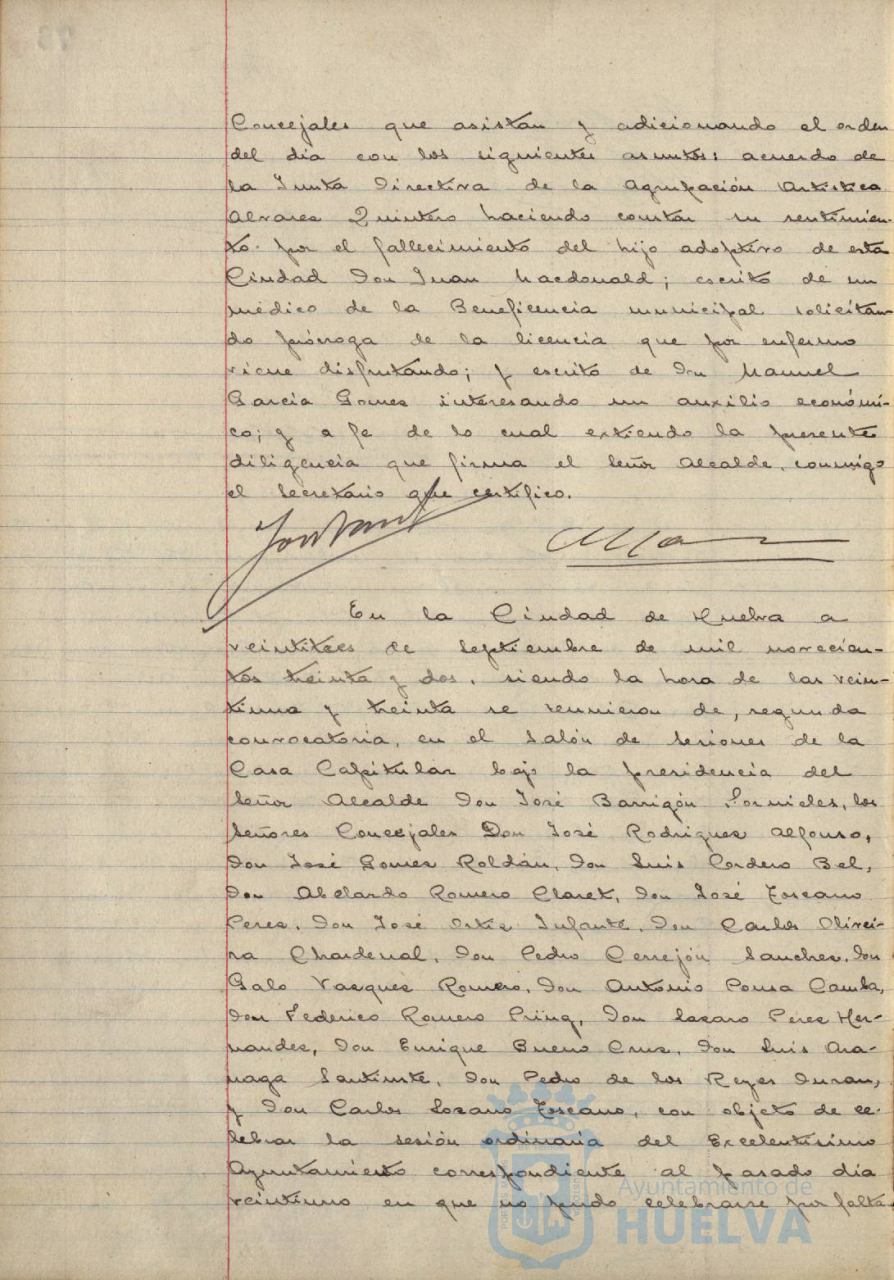 Concejales que asistan y adicionando el orden
del dia con los siguientes asuntos: acuerdo de
la Junta Directiva de la Agrupación Artistica
Alvarez Quintero haciendo constar su sentimien-
to por el fallecimiento del hijo adoptivo de esta
Ciudad Don Juan Macdonald; escrito de un
médico de la Beneficencia municipal solicitan-
do prórroga de la licencia que por enfermo
viene disfrutando; y escrito de Don Manuel
Garcia Gomez interesando un auxilio económi-
co; y a fe de lo cual extiendo la presente
diligencia que firma el Señor Alcalde, conmigo
el Secretario que certifico.
En la Ciudad de Huelva a
veintitres de septiembre de mil novecien-
tos treinta y dos, siendo la hora de las vein-
tiuna y treinta se reunieron de, segunda
convocatoria, en el Salón de Sesiones de la
Casa Capitular bajo la presidencia del
Señor Alcalde Don José Barrigón Fornieles, los
Señores Concejales Don José Rodriguez Alfonso,
Don José Gomez Roldán, Don Luis Cordero Bel,
Don Abelardo Romero Claret, Don José Toscano
Perez, Don José Ortiz Infante, Don Carlos Olivei-
ra Chardenal, Don Pedro Cerrejón Sanchez, Don
Galo Vazquez Romero, Don Antonio Ponsa Camba,
Don Federico Romero Pring, Don Lazaro Perez Her-
nandez, Don Enrique Bueno Cruz, Don Luis Ara-
naga Santiuste, Don Pedro de los Reyes Duran,
y Don Carlos Lozano Toscano, con objeto de ce-
lebrar la sesión ordinaria del Excelentisimo
Ayuntamiento correspondiente al pasado dia
veintiuno en que no pudo celebrarse por falta
Ayuntamiento de
HUELVA